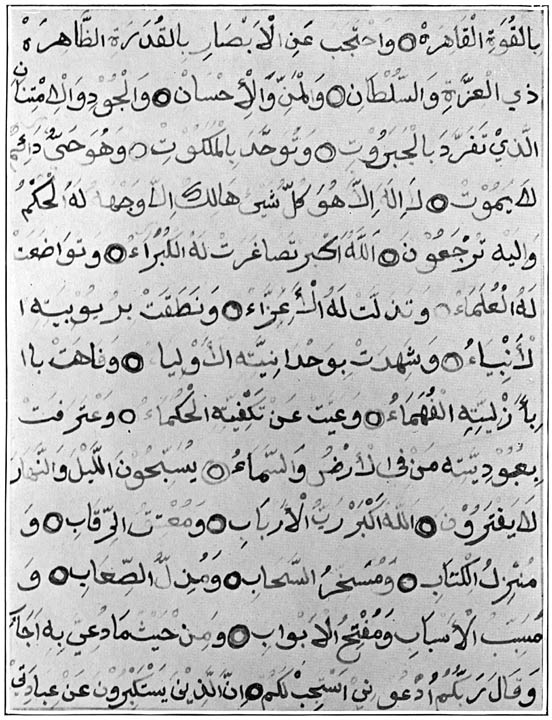 بِالْقُوَةِ الْقَاهِرَةْ ۝ وَاحْتَجَبَ عَنِ الْاَبْصَارِ بِالْقُدَرَةِ الظَّاهِرَةْ
ذِي الْعِزَّةِ وَالسُّلْطَانِ ۝ وَالْمَنِّ وَالْاِحْسَانْ ۝ وَالْجُودِ وَالْاِمْتِنَانِ
الَّذِيْ تَفَرَّدَ بِالْجَبَرُوْتِ ۝ وَتَوَحَّدَ بِالْمَلَكُوْتْ ۝ وَهُوَ حَيٌّ دَائِمٌ
لَا يَمُوْتْ ۝ لَا اِلٰهَ اِلَّا هُوَ كُلُّ شَيْءٍ هَالِكٌ اِلَّا وَجْهَهُ لَهُ الْحُكْمُ
وَاِلَيْهِ تُرْجَعُوْنَ ۝ اَللهُ اَكْبَرْ تَصَاغَرَتْ لَهُ الْكُبَرَاءُ ۝ وَتَوَاضَعَتْ
لَهُ الْعُلَمَاءُ ۝ وَتَذَلَّتْ لَهُ الْأَعِزَّاءُ ۝ وَنَطَقَتْ بِرُبُوْبِيَتِهِ ا
لْأَنْبِيَاءُ ۝ وَشَهِدَتْ بِوَحْدَانِيَّتِهِ الْاَوْلِيَاءُ ۝ وَفَاهَتْ بِاا
بِأَزَلِيَّتِهِ الْفُهَمَاءُ ۝ وَعَيَتْ عَنْ تَكْفِيَّتِهِ الْحُكَمَاءُ ۝ وَعْتَرَفَتْ
بِعُبُوْدِيَّتِهِ مَنْ فِي الْاَرْضِ وَالسَّمَاءُ ۝ يُسَبِّحُوْنَ اللَّيْلَ وَالنَّهَارَ
لَا يَفْتَرُوْنَ ۝ اَللهُ اَكْبَرْ رَبُّ الْاَرْبَابِ ۝ وَمُعْتِقَ الرِّقَابِ ۝ وَ
مُنْزِلُ الْكِتَابِ ۝ وَمُسَخِّرُ السَّحَابِ ۝ وَمُذِلُّ الصِّعَابِ ۝ وَ
مُسَبِّبَ الْاَسْبَابِ وَمُفْتِحُ الْاَبْوَابِ ۝ وَمِنْ حَيْثُ مَا دُعِيَ بِهِ اَجَابَ
وَقَالَ رَبُّكُمُ ادْعُوْنِيْ اَسْتَجِبْ لَكُمْ ۝ اِنَّ الَّذِيْنَ يَسْتَكْبِرُوْنَ عَنْ عِبَادَتِيْ